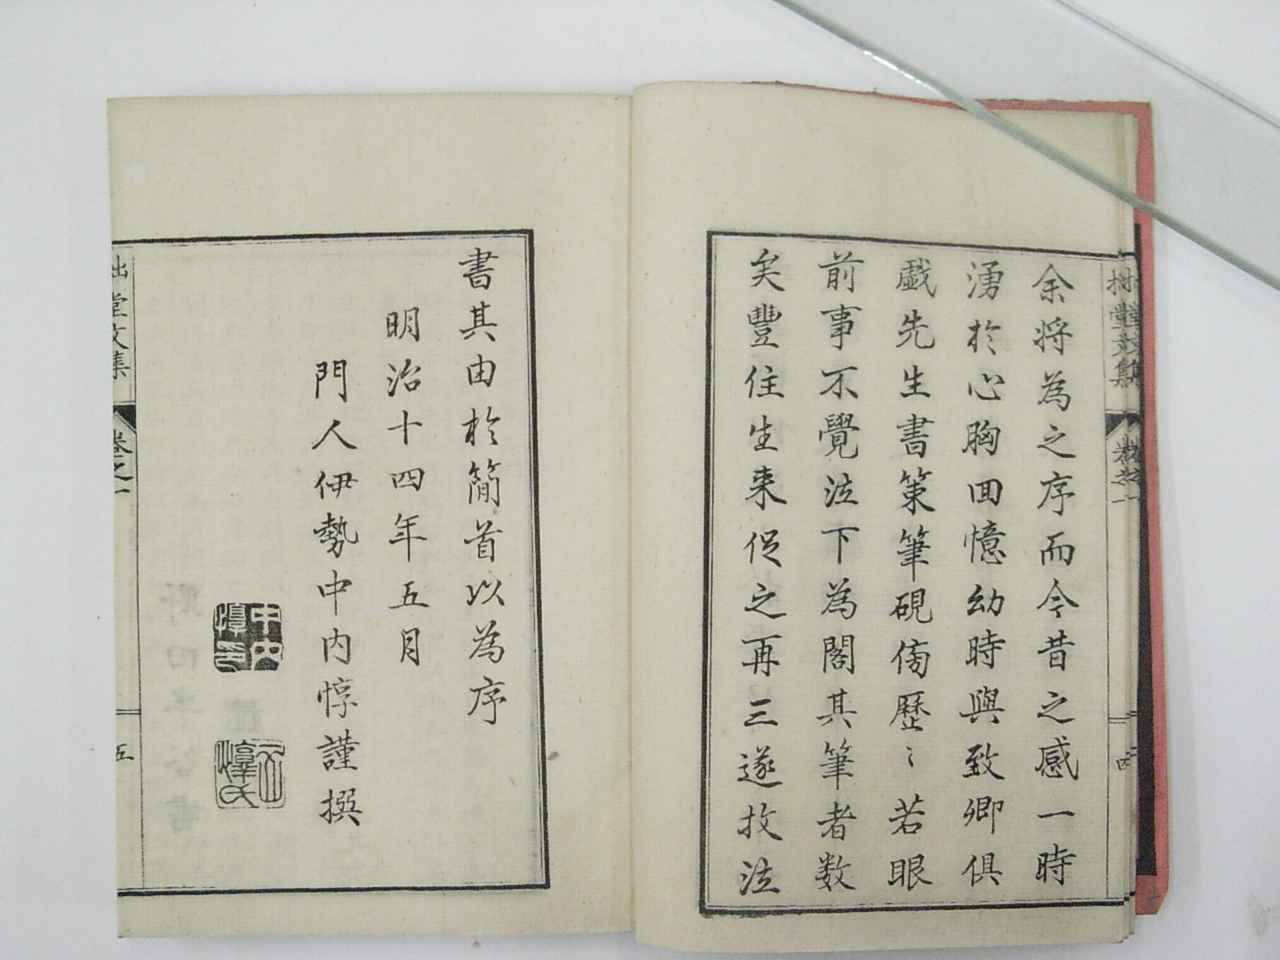 余将為之序而今昔之感一時
湧於心胸回憶幼時與致卿俱
戯先生書策筆硯傍歴〻若眼
前事不覺泣下為閣其筆者数
矣豐住生来促之再三遂抆泣
書其由於簡首以為序
明治十四年五月
門人伊勢中内惇謹撰
中内惇印
惇氏
拙堂文集
卷之一
四
堂文集
卷之一
五